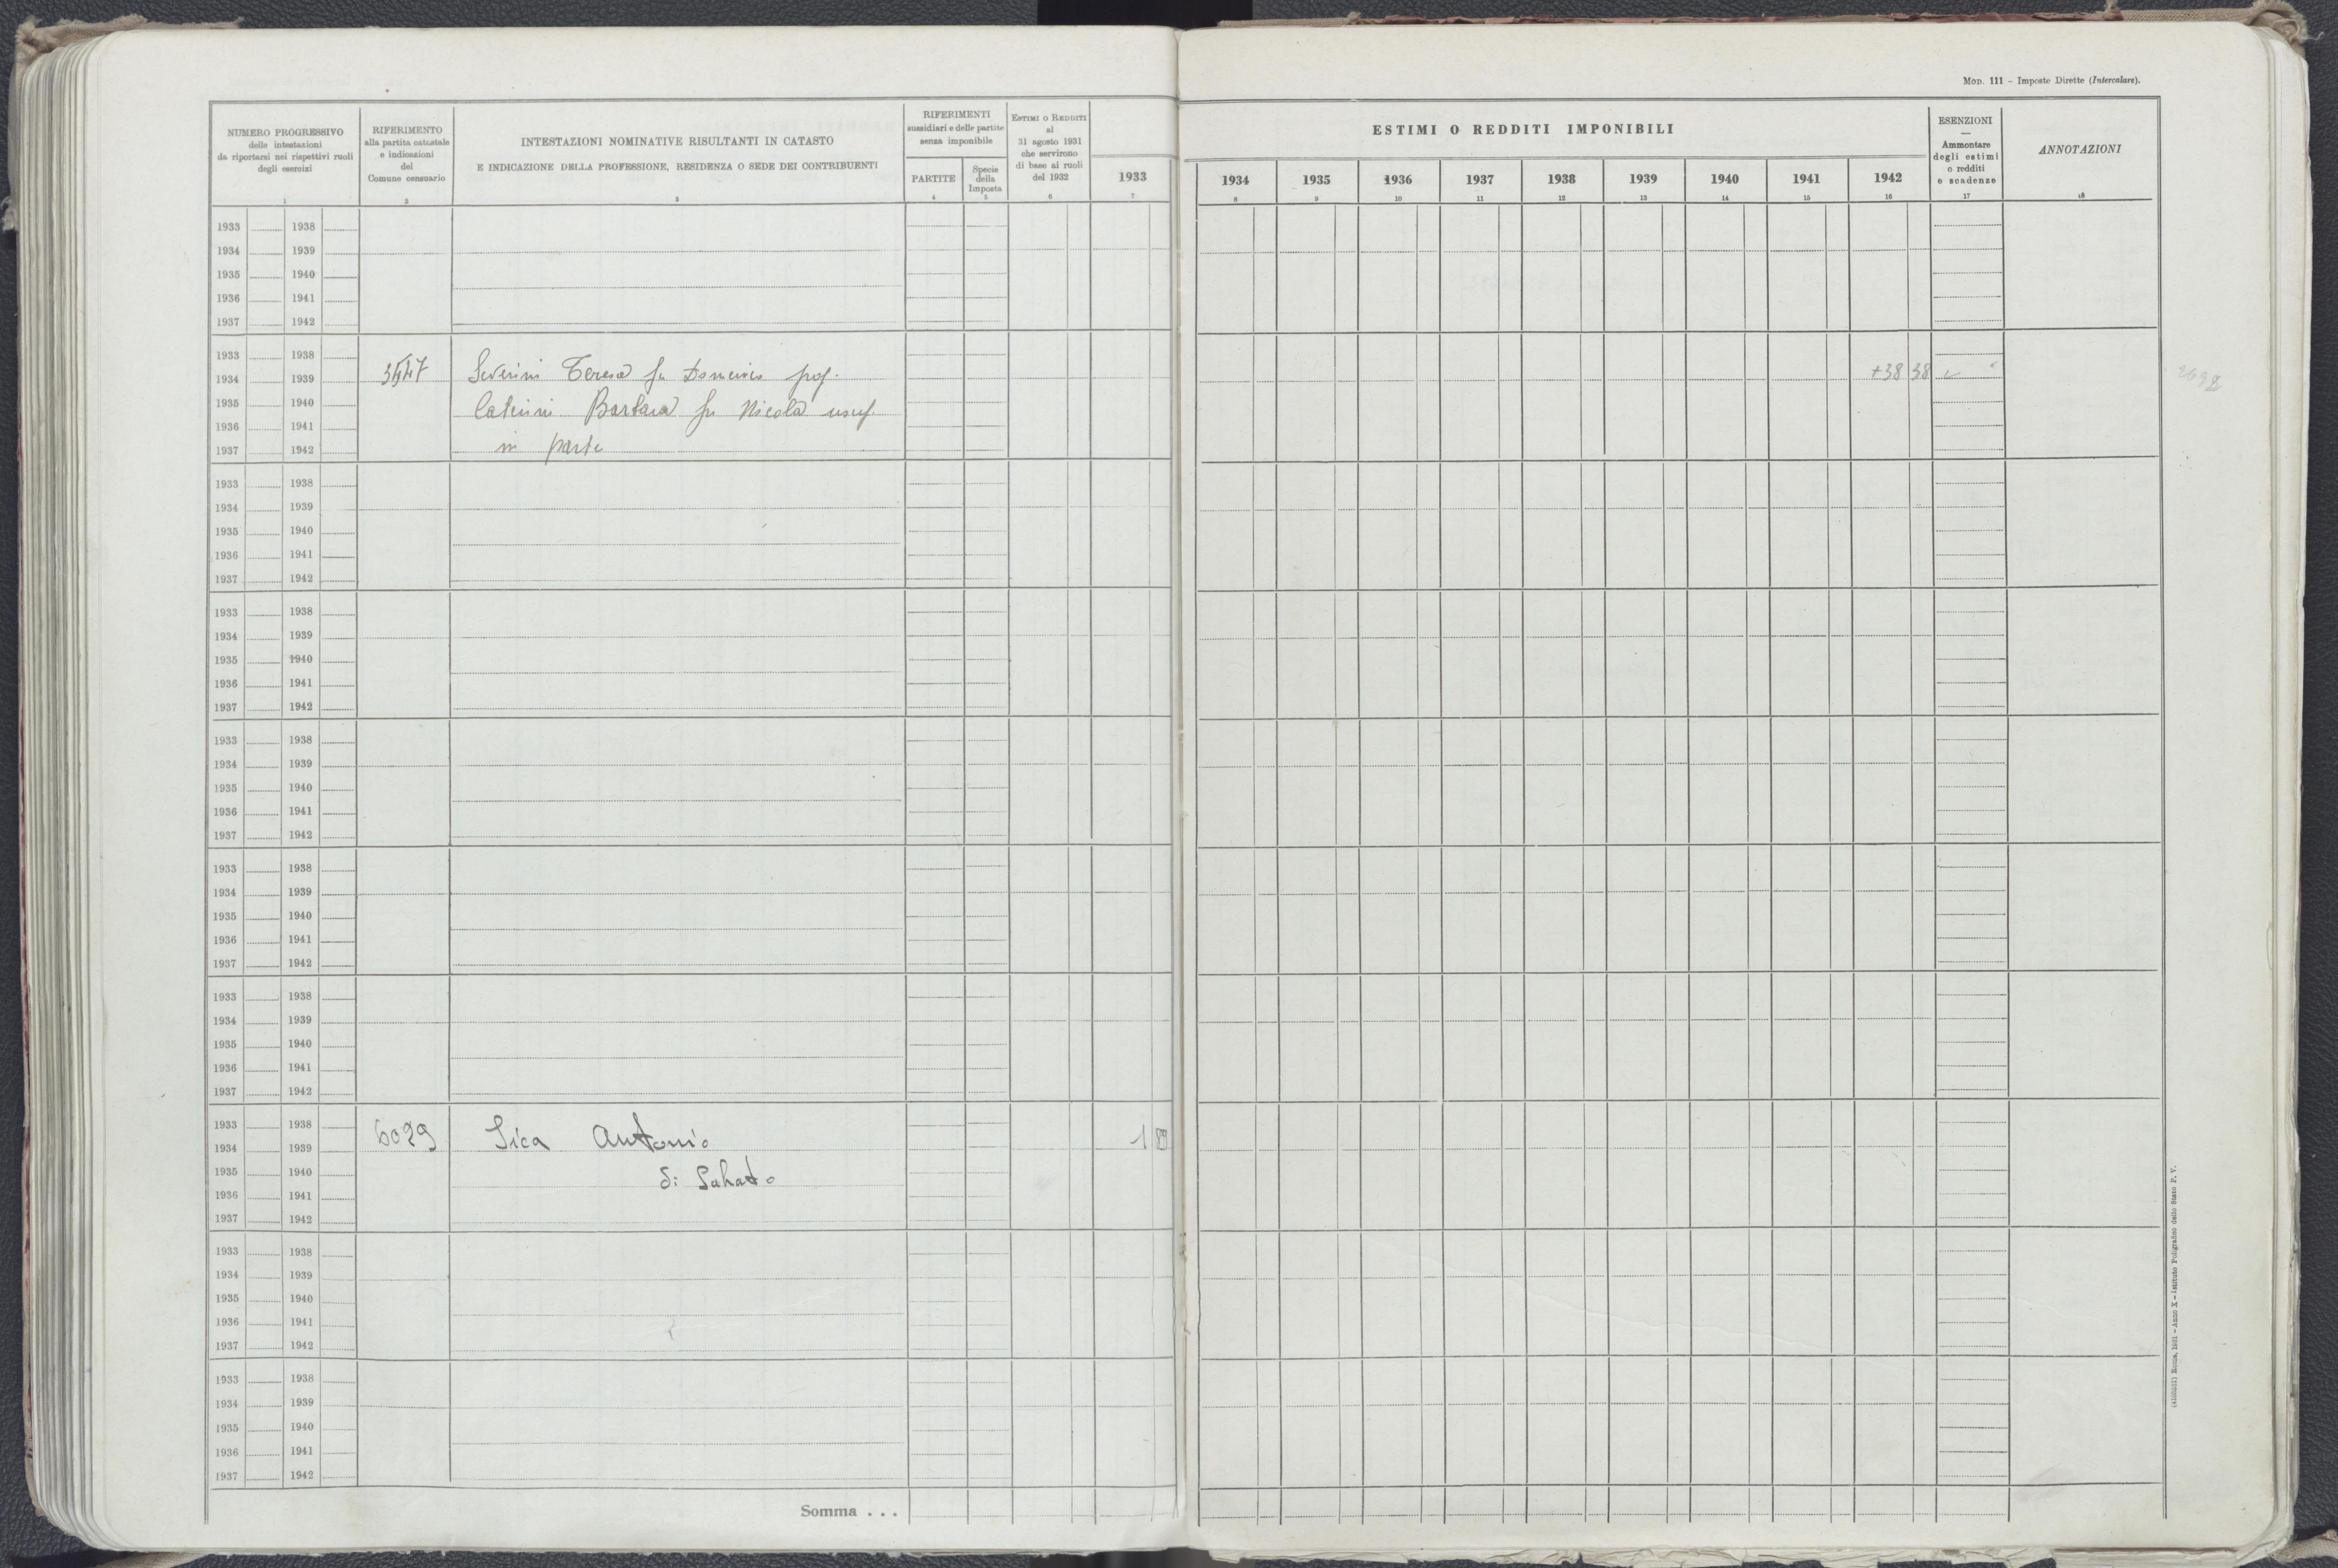 MOD. 111 - Imposte Dirette (Intercalare).
NUMERO PROGRESSIVO
delle intestazioni
da riportarsi nei rispettivi ruoli
degli esercizi
1
RIFERIMENTO
alla partita catastale
e indicazioni
del
Comune censuario
2
INTESTAZIONI NOMINATIVE RISULTANTI IN CATASTO
E INDICAZIONE DELLA PROFESSIONE, RESIDENZA O SEDE DEI CONTRIBUENTI
3
RIFERIMENTI
sussidiari e delle partite
senza imponibile
PARTITE
4
Specie
della
Imposta
5
ESTIMI O REDDITI
al
31 agosto 1931
che servirono
di base ai ruoli
del 1932
6
ESTIMI O REDDITI IMPONIBILI
1933 1934 1935 1936 1937 1938 1939 1940 1941 1942
7 8 9 10 11 12 13 14 15 16
ESENZIONI
—
Ammontare
degli estimi
o redditi
e scadenze
17
ANNOTAZIONI
18
1933 1938
1934 1939
1935 1940
1936 1941
1937 1942
1933 1938
1934 1939 Severini Teresa fu Domenico prop. +38 38
1935 1940 Caterini Barbara fu Nicola usuf.
1936 1941
1937 1942 in parte
1933 1938
1934 1939
1935 1940
1936 1941
1937 1942
1933 1938
1934 1939
1935 1940
1936 1941
1937 1942
1933 1938
1934 1939
1935 1940
1936 1941
1937 1942
1933 1938
1934 1939
1935 1940
1936 1941
1937 1942
1933 1938
1934 1939
1935 1940
1936 1941
1937 1942
1933 1938
1934 1939 6029 Sica Antonio 1
1935 1940 di Sabato
1936 1941
1937 1942
1933 1938
1934 1939
1935 1940
1936 1941
1937 1942
1933 1938
1934 1939
1935 1940
1936 1941
1937 1942
Somma . . .
Roma, 1931 - Anno X - Istituto Poligrafico dello Stato P. V.